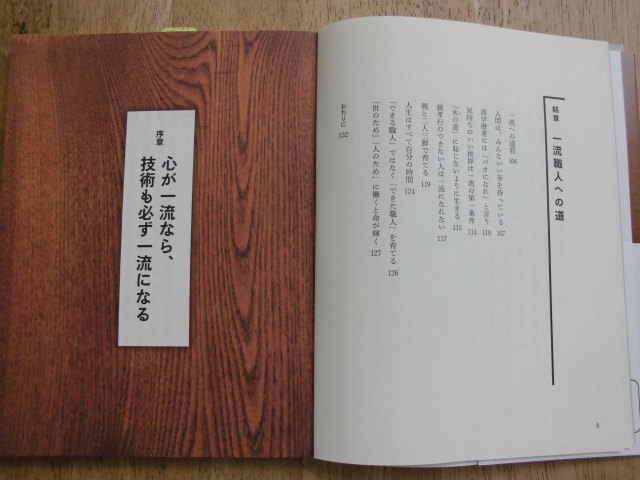 終章 一流職人への道
一流への道筋 106
人間は、みんないい芽を持っている 107
高学歴者には「バカになれ」と言う 110
気持ちのいい挨拶は一流の第一条件 114
「木の道」に恥じないように生きる 115
親孝行のできない人は一流になれない 117
親り二人三脚で育てる 119
人生はすべて自分の時間 124
「できる職人」ではなく「できた職人」を育てる 126
「世のため」「人のため」に働くと命が輝く 127
おわりに 132
8
序章
心が一流なら、
技術も必ず一流になる